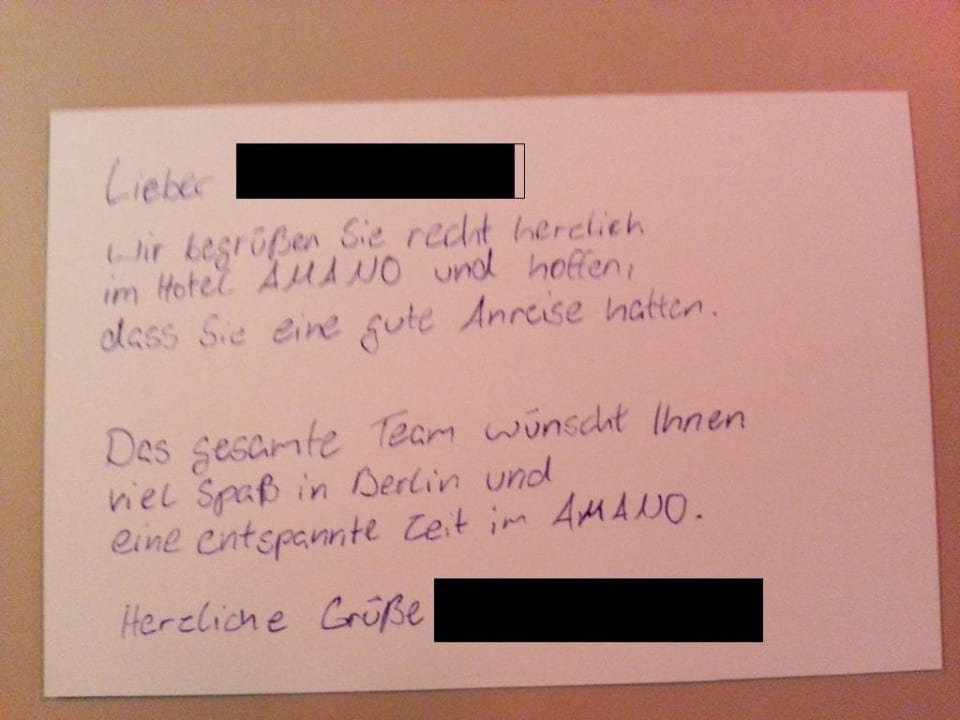 Lieber
wir begrüßen Sie recht herzlich
im Hotel AMANO und hoffen,
dass Sie eine gute Anreise hatten.
Das gesamte Team wünscht Ihnen
viel Spaß in Berlin und
eine entspannte Zeit im AMANO.
Herzliche Grüße